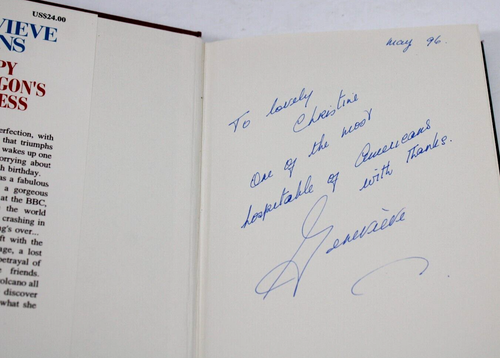 US$24.00
VIEVE
NS
PY
GON'S
ESS
erfection, with
that triumphs
wakes up one
orrying about
h birthday.
as a fabulous
a gorgeous
at the BBC,
the world
crashing in
ng's over...
ft with the
age, a lost
betrayal of
friends.
olcano all
discover
what she
May 96.
To lovely
Christine
One of the most
hospitable of Americans
with thanks.
Genevieve